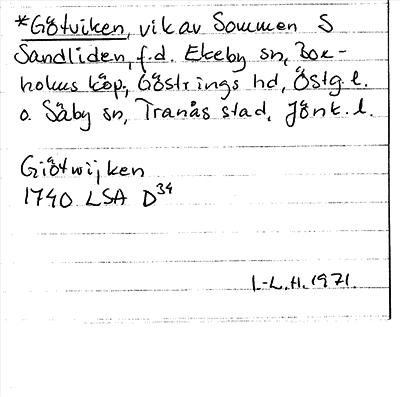 *Götviken, vik av Sommen S
Sandliden, f.d. Ekeby sn, Box-
holms köp., Göstrings hd, Östg.l.
o. Säby sn, Tranås stad, Jönk.l.
Giötwijken
1740 LSA D34
I.-L.H. 1971.